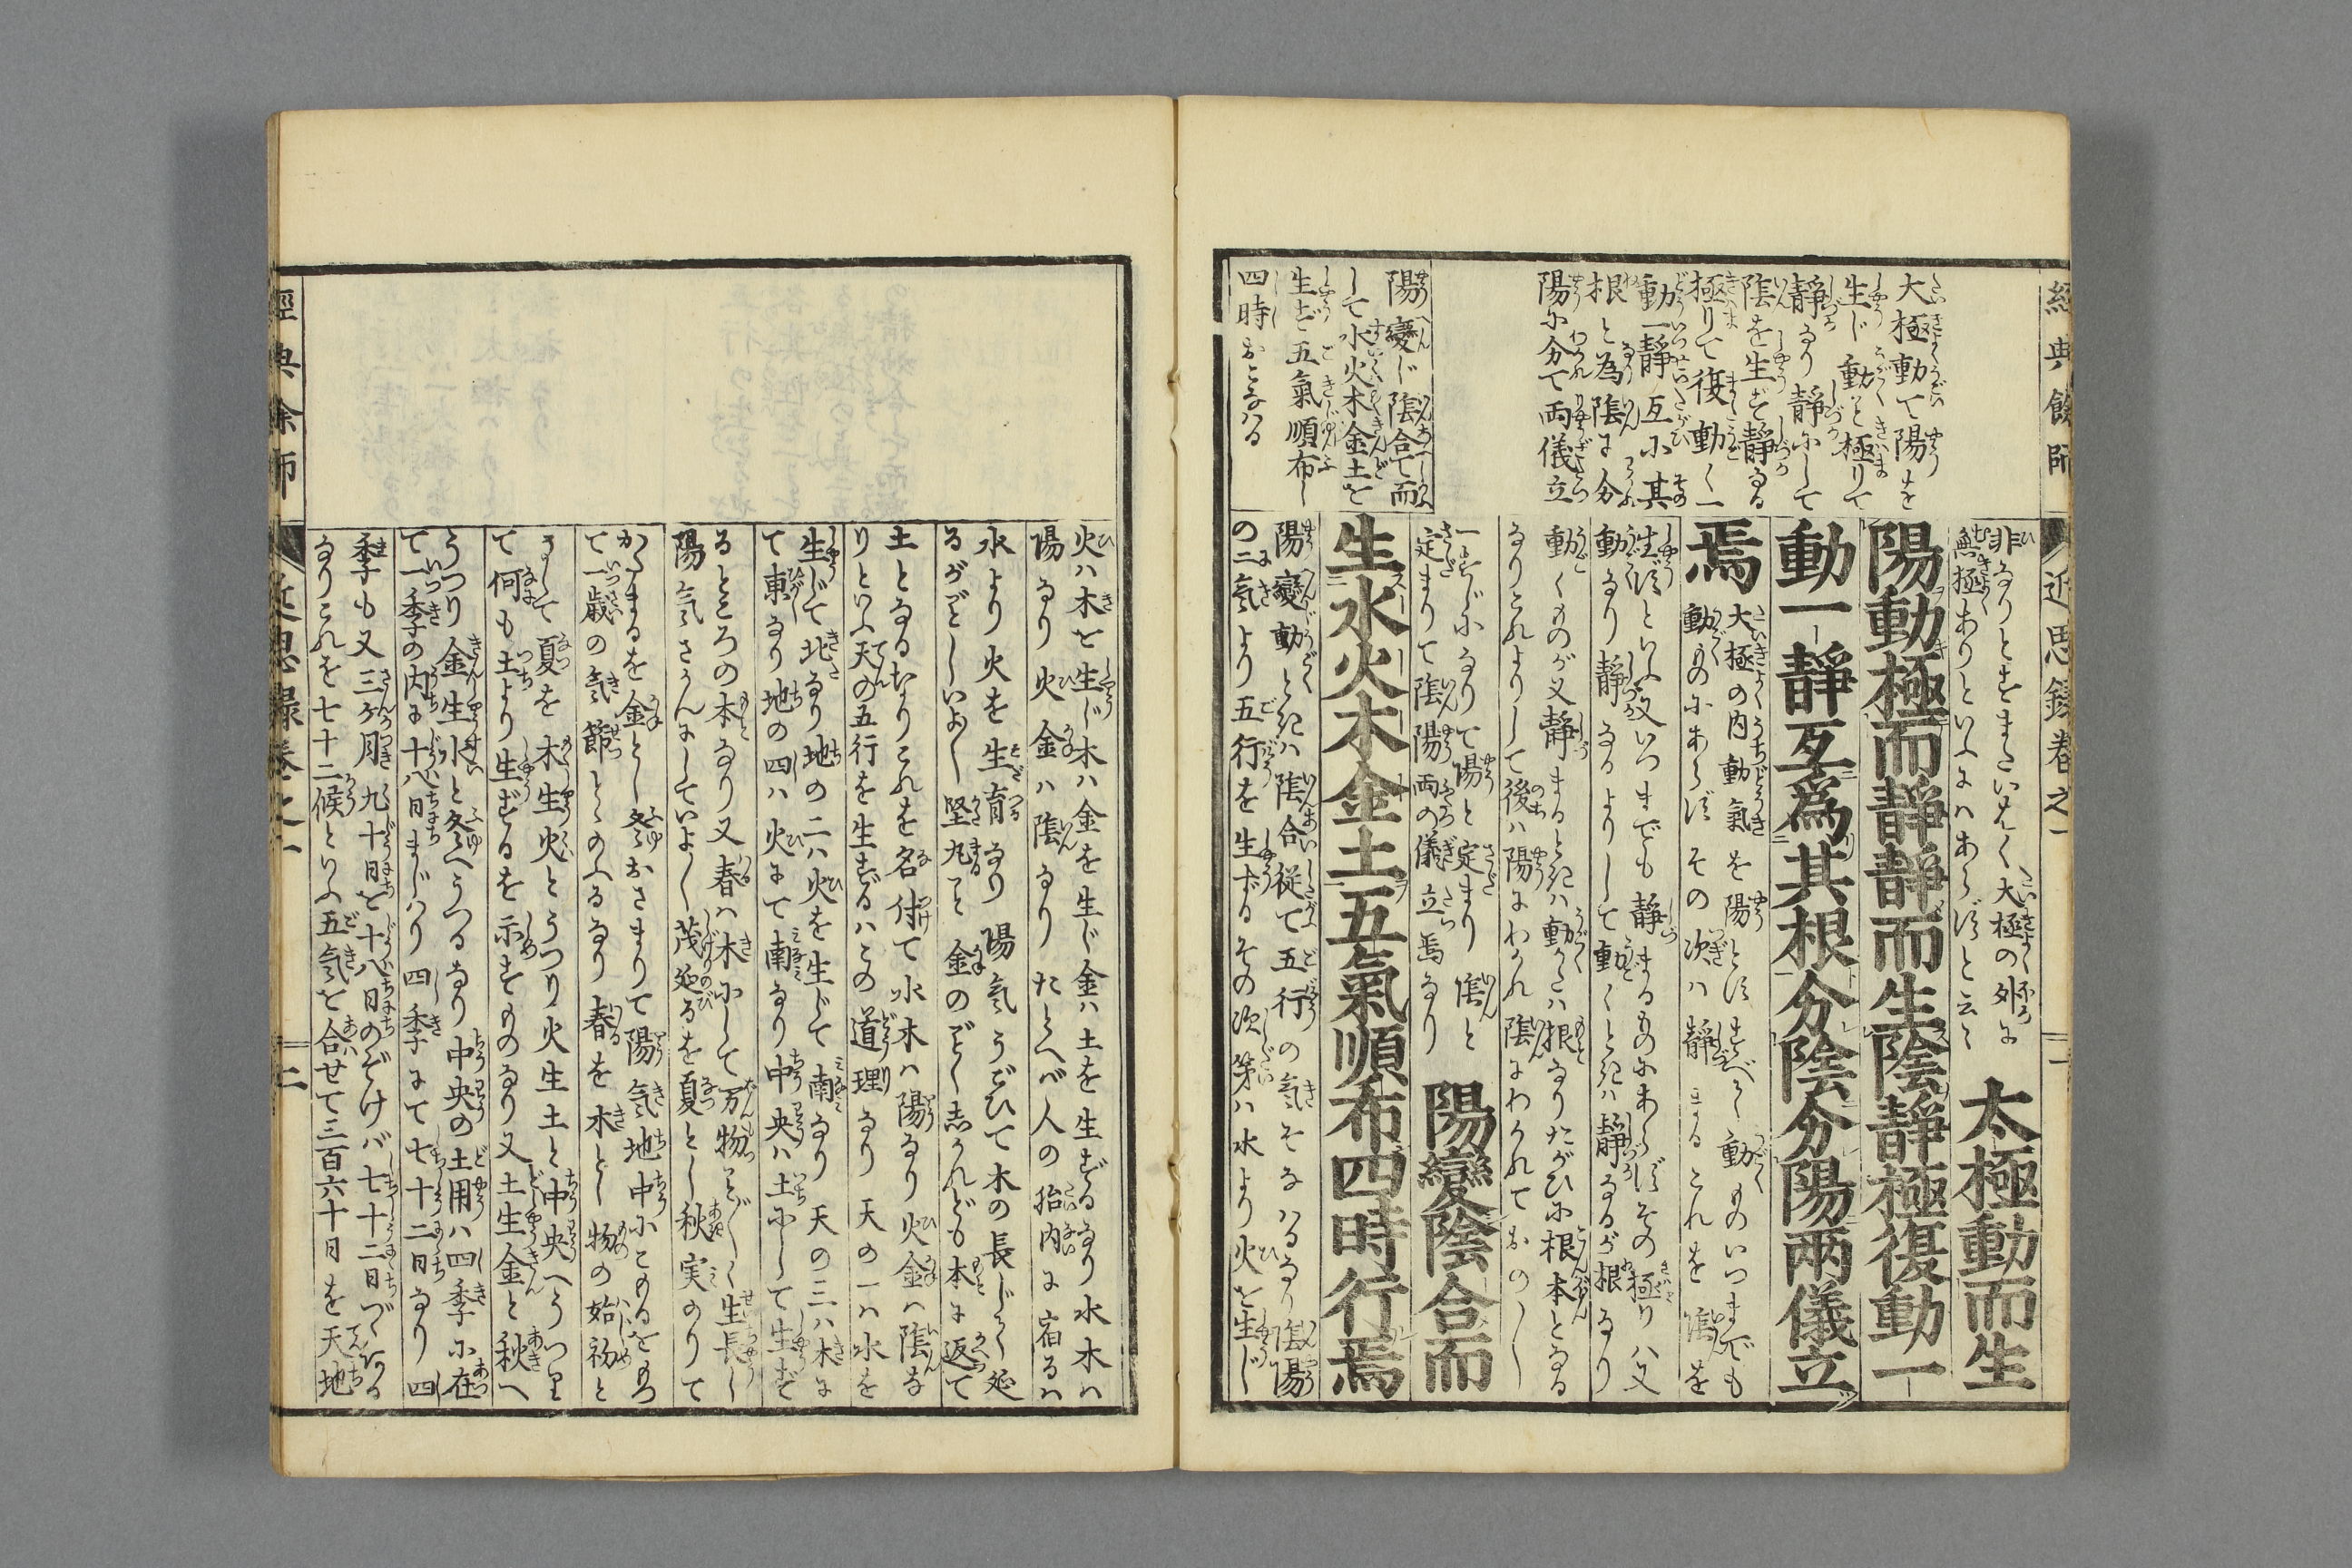 經典餘師
近思錄卷之一
一
大極動て陽を
生じ動と極りて
静なり静にして
陰を生ず静なる
極りて復動く一
動一静互に其
根と為陰に分
陽に分て両儀立
陽變じ陰合て而
して水火木金土を
生ず五氣順布し
四時おこなハる
非なりとすまたいはく大極の外に
無極ありといふにハあらずと云々
太極動而生
陽動極而靜靜而生陰靜極復動一
動一靜互爲其根分陰分陽兩儀立
焉
大極の内動氣を陽とす すべて動ものいつまでも
動ものにあらず その次ハ静まるこれを陰を
生ずといふ又いつまでも静まるものにあらずその極りハ又
動なり静なるよりして動くときハ静なるが根なり
動くものが又静まるときハ動くかたハ根なりたがひに根本となる
なりこれよりして後ハ陽にわかれ陰にわかれておの〳〵
一すぢになりて陽と定まり陰と
定まりて陰陽両の儀立焉なり
陽變陰合而
生水火木金土五氣順布四時行焉
陽變動ときハ陰合従て五行の氣そなハるなり陰陽
の二氣より五行を生ずるその次第ハ水より火を生じ
火ハ木を生じ木ハ金を生じ金ハ土を生ずるなり水木ハ
陽なり火金ハ陰なりたとへバ人の胎内に宿るハ
水より火を生育なり陽氣うごひて木の長じく延
るがごとしいよ〳〵堅丸こと金のごとく志かれども本に返て
土となるなりこれを名付て水木ハ陽なり火金ハ陰な
りといふ天の五行を生ずるハこの道理なり天の一ハ水を
生じて北なり地の二ハ火を生じて南なり天の三ハ木に
て東なり地の四ハ火にて南なり中央ハ土にして生ず
るところの本なり又春ハ木にして万物こと〴〵く生長し
陽氣さかんにしていよ〳〵茂延るを夏とし秋実のりて
かたまるを金とし冬おさまりて陽氣地中にこもるをもつ
て一歳の氣節とゝのふるなり春を木とし物の始初と
して夏を木生火とうつり火生土と中央へうつり
て何も土より生ずるを示すものなり又土生金と秋へ
うつり金生水と冬へうつるなり中央の土用ハ四季に在
て一季の内に十八日まじハり四季にて七十二日なり四
季も又三ケ月九十日を十八日のぞけバ七十二日づゝなる
なりこれを七十二候といふ五氣を合せて三百六十日を天地
經典餘師
近思錄卷之一
二